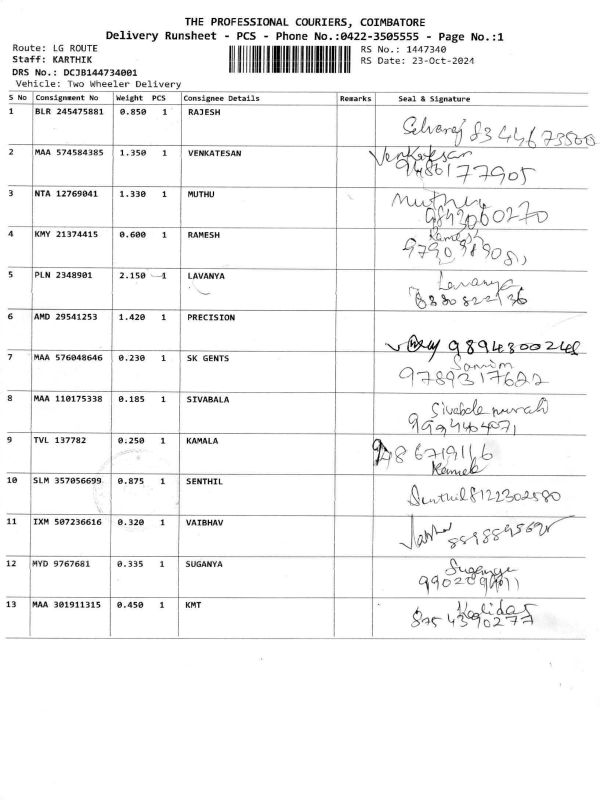 THE PROFESSIONAL COURIERS, COIMBATORE
Delivery Runsheet - PCS - Phone No.:0422-3505555 - Page No.:1
Route: LG ROUTE RS No.: 1447340
Staff: KARTHIK RS Date: 23-Oct-2024
DRS No.: DCJB144734001
Vehicle: Two Wheeler Delivery
S No Consignment No Weight PCS Consignee Details Remarks Seal & Signature
1 BLR 245475881 0.850 1 RAJESH
Selvaraj
2 MAA 574584385 1.350 1 VENKATESAN Venkatesan
9486177905
3 NTA 12769041 1.330 1 MUTHU
9842060270
4 KMY 21374415 0.600 1 RAMESH Ramesh
5 PLN 2348901 2.150 1 LAVANYA Lavanya
6 AMD 29541253 1.420 1 PRECISION
7 MAA 576048646 0.230 1 SK GENTS
9789317622
8 MAA 110175338 0.185 1 SIVABALA
9 TVL 137782 0.250 1 KAMALA
10 SLM 357056699 0.875 1 SENTHIL Senthil 8122302580
11 IXM 507236616 0.320 1 VAIBHAV
12 MYD 9767681 0.335 1 SUGANYA Suganya
13 MAA 301911315 0.450 1 KMT Kalidas
8754390277